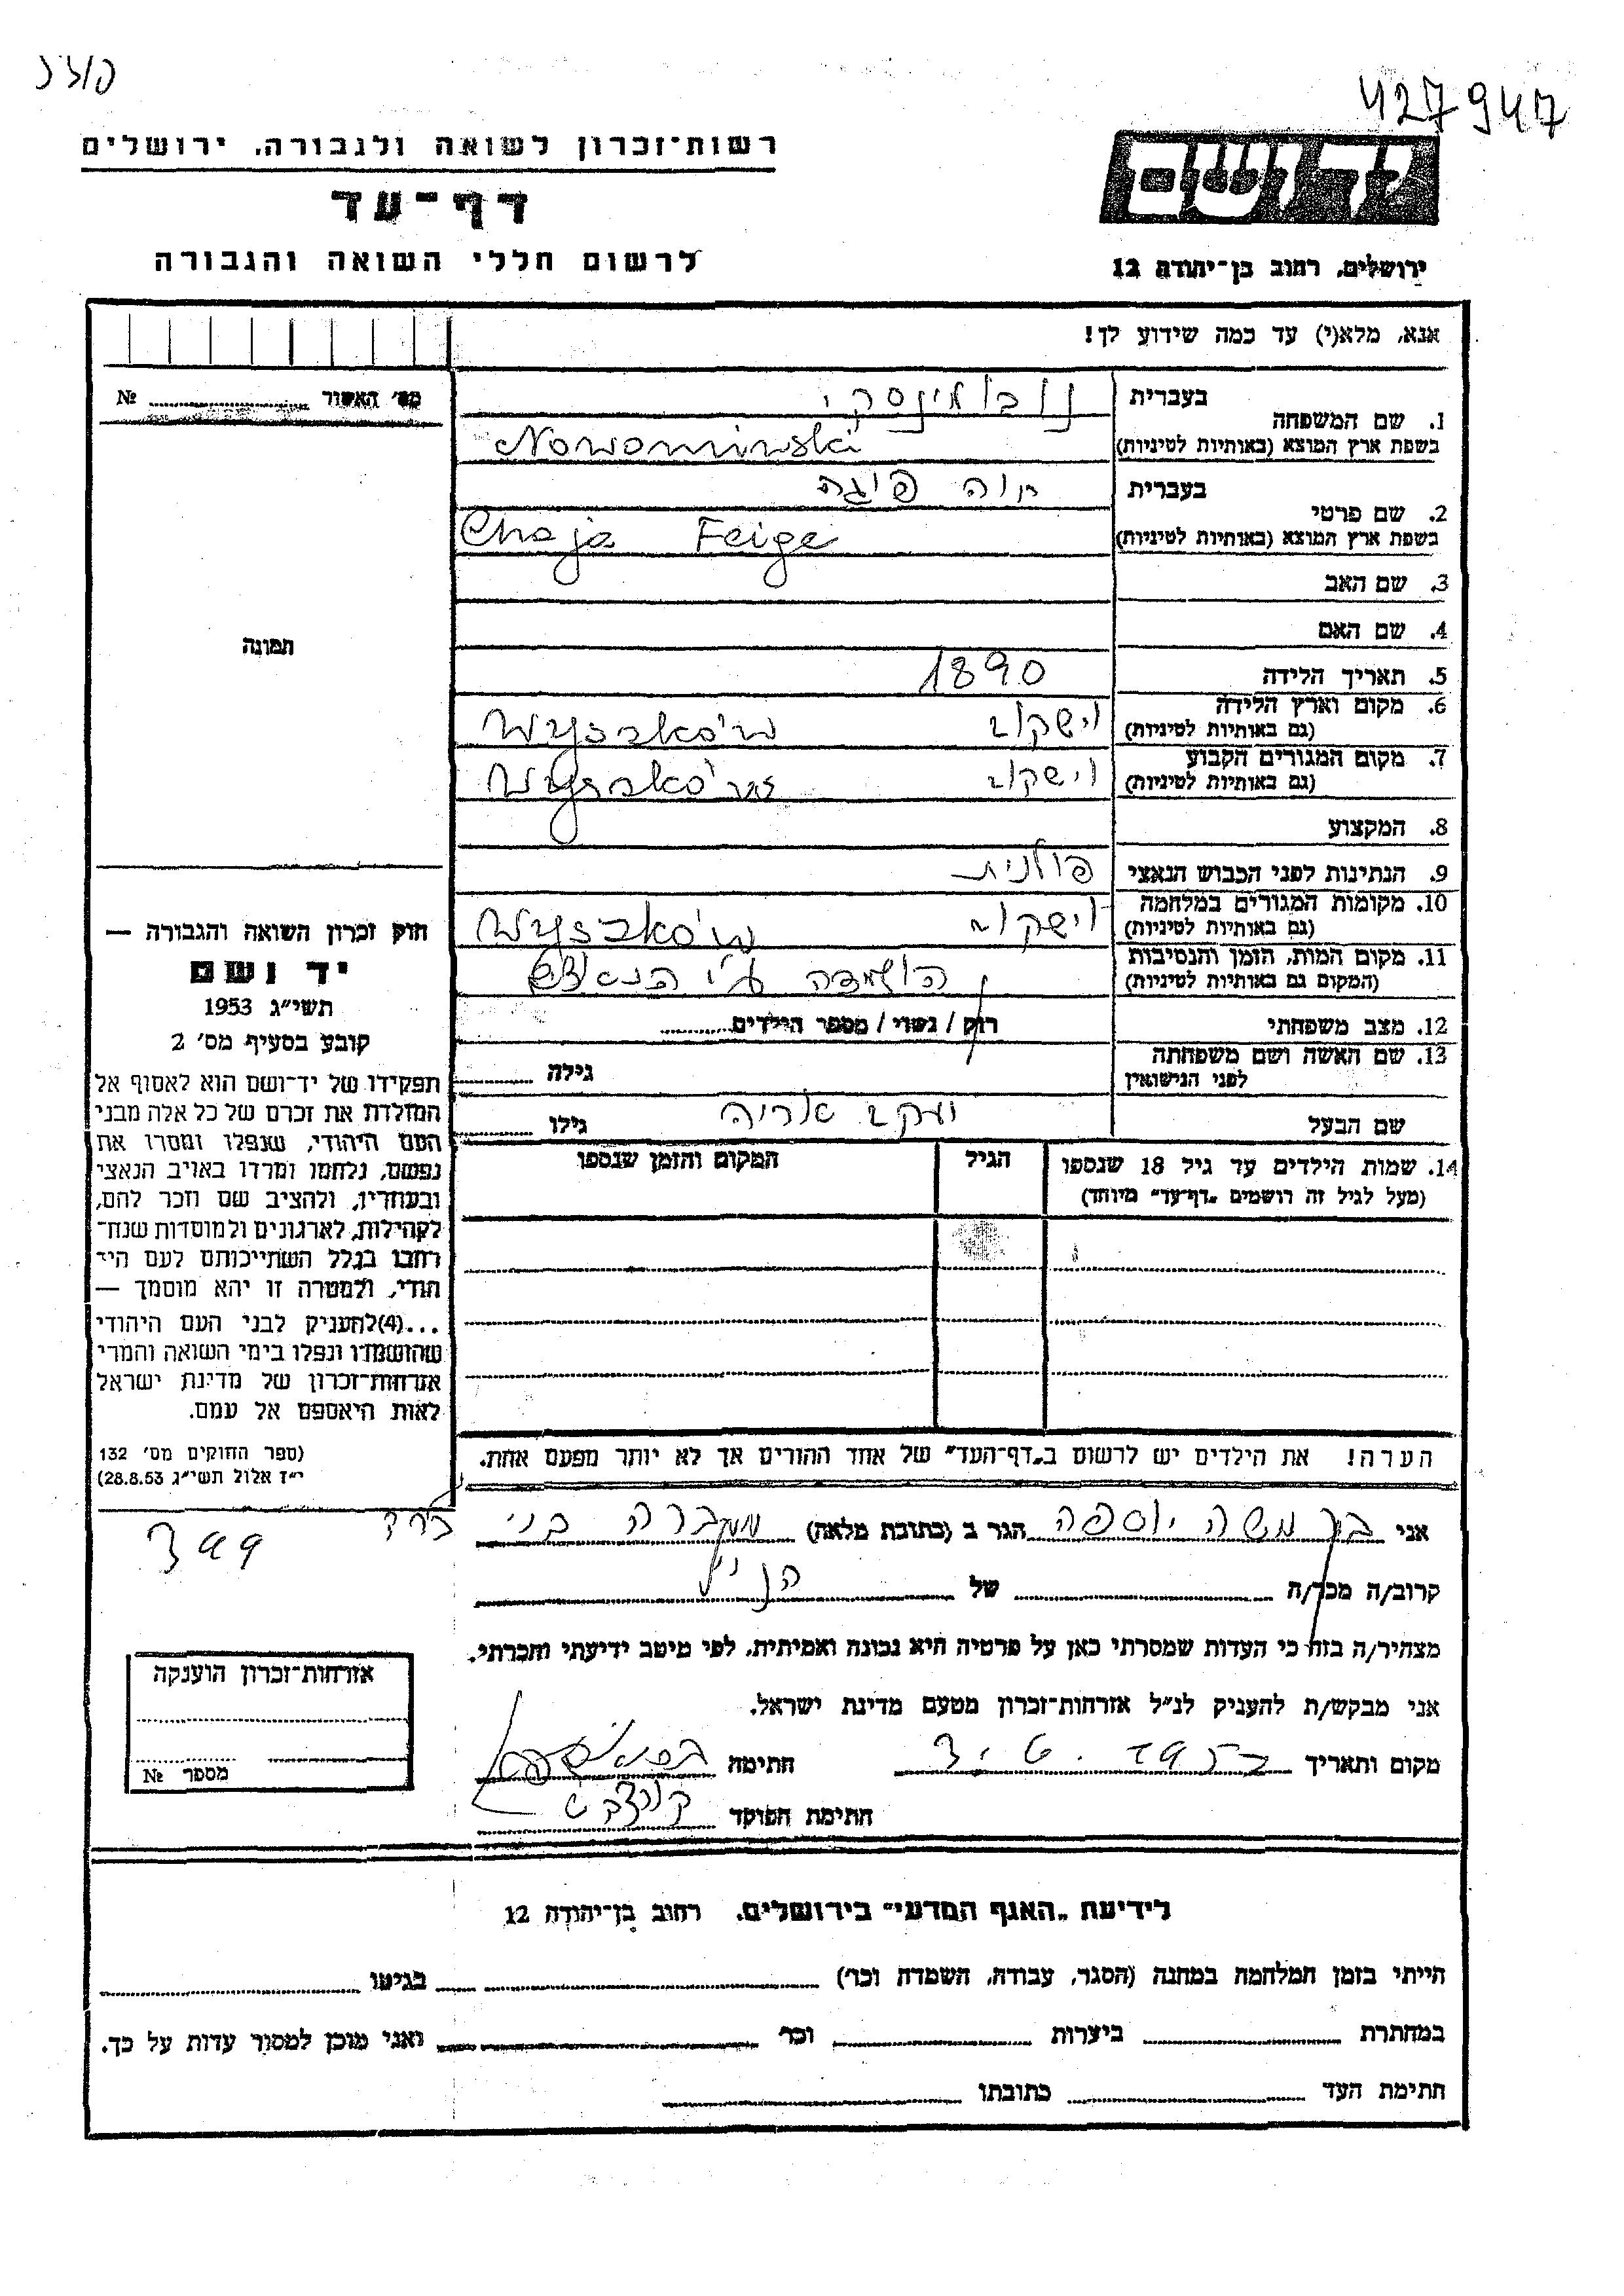 427947
רשות־זכרון לשואה ולגבורה. ירושלים
דף־עד
לרשום חללי השואה והגבורה
יד ושם
ירושלים, רחוב בן־יהודה 12
אנא, מלא(י) עד כמה שידוע לך!
מס' האשור № 
תמונה
בעברית
1. שם המשפחה
בשפת ארץ המוצא (באותיות לטיניות)
נובומינסקי
Nowominski
בעברית
2. שם פרטי
בשפת ארץ המוצא (באותיות לטיניות)
חיה פיגה
Chaja Feige
3. שם האב
4. שם האם
5. תאריך הלידה 1890
6. מקום וארץ הלידה
(גם באותיות לטיניות)
וישקוב Wyszków
7. מקום המגורים הקבוע
(גם באותיות לטיניות)
וישקוב Wyszków
8. המקצוע
9. הנתינות לפני הכבוש הנאצי פולנית
10. מקומות המגורים במלחמה
(גם באותיות לטיניות)
וישקוב Wyszków
11. מקום המות, הזמן והנסיבות
(המקום גם באותיות לטיניות)
הושמדה ע"י הנאצים
12. מצב משפחתי רווק / נשוי / מספר הילדים
13. שם האשה ושם משפחתה
לפני הנישואין
גילה
שם הבעל יעקב אריה גילו
14. שמות הילדים עד גיל 18 שנספו
(מעל לגיל זה רושמים „דף־עד” מיוחד)
הגיל
המקום והזמן שנספו
הערה! את הילדים יש לרשום ב„דף־העד” של אחד ההורים אך לא יותר מפעם אחת.
חוק זכרון השואה והגבורה —
יד ושם
תשי״ג 1953
קובע בסעיף מס׳ 2
תפקידו של יד־ושם הוא לאסוף אל
המולדת את זכרם של כל אלה מבני
העם היהודי, שנפלו ומסרו את
נפשם, נלחמו ומרדו באויב הנאצי
ובעוזריו, ולהציב שם וזכר להם,
לקהילות, לארגונים ולמוסדות שנח־
רבו בגלל השתייכותם לעם הי־
הודי, ולמטרה זו יהא מוסמך —
...(4)להעניק לבני העם היהודי
שהושמדו ונפלו בימי השואה והמרי
אזרחות־זכרון של מדינת ישראל
לאות היאספם אל עמם.
(ספר החוקים מס׳ 132
י״ז אלול תשי״ג 28.8.53)
אני בן משה יוספה הגר ב (כתובת מלאה) מעברה בני ברק
קרוב/ה מכר/ה של הנ"ל
מצהיר/ה בזה כי העדות שמסרתי כאן על פרטיה היא נכונה ואמיתית, לפי מיטב ידיעתי והכרתי.
אני מבקש/ת להעניק לנ״ל אזרחות־זכרון מטעם מדינת ישראל.
מקום ותאריך חתימה
חתימת הפוקד
אזרחות־זכרון הוענקה
מספר №
לידיעת „האגף המדעי” בירושלים. רחוב בן־יהודה 12
הייתי בזמן המלחמה במחנה (הסגר, עבודה, השמדה וכר׳) בגיטו
במחתרת ביערות וכר׳ ואני מוכן למסור עדות על כך.
חתימת העד כתובתו